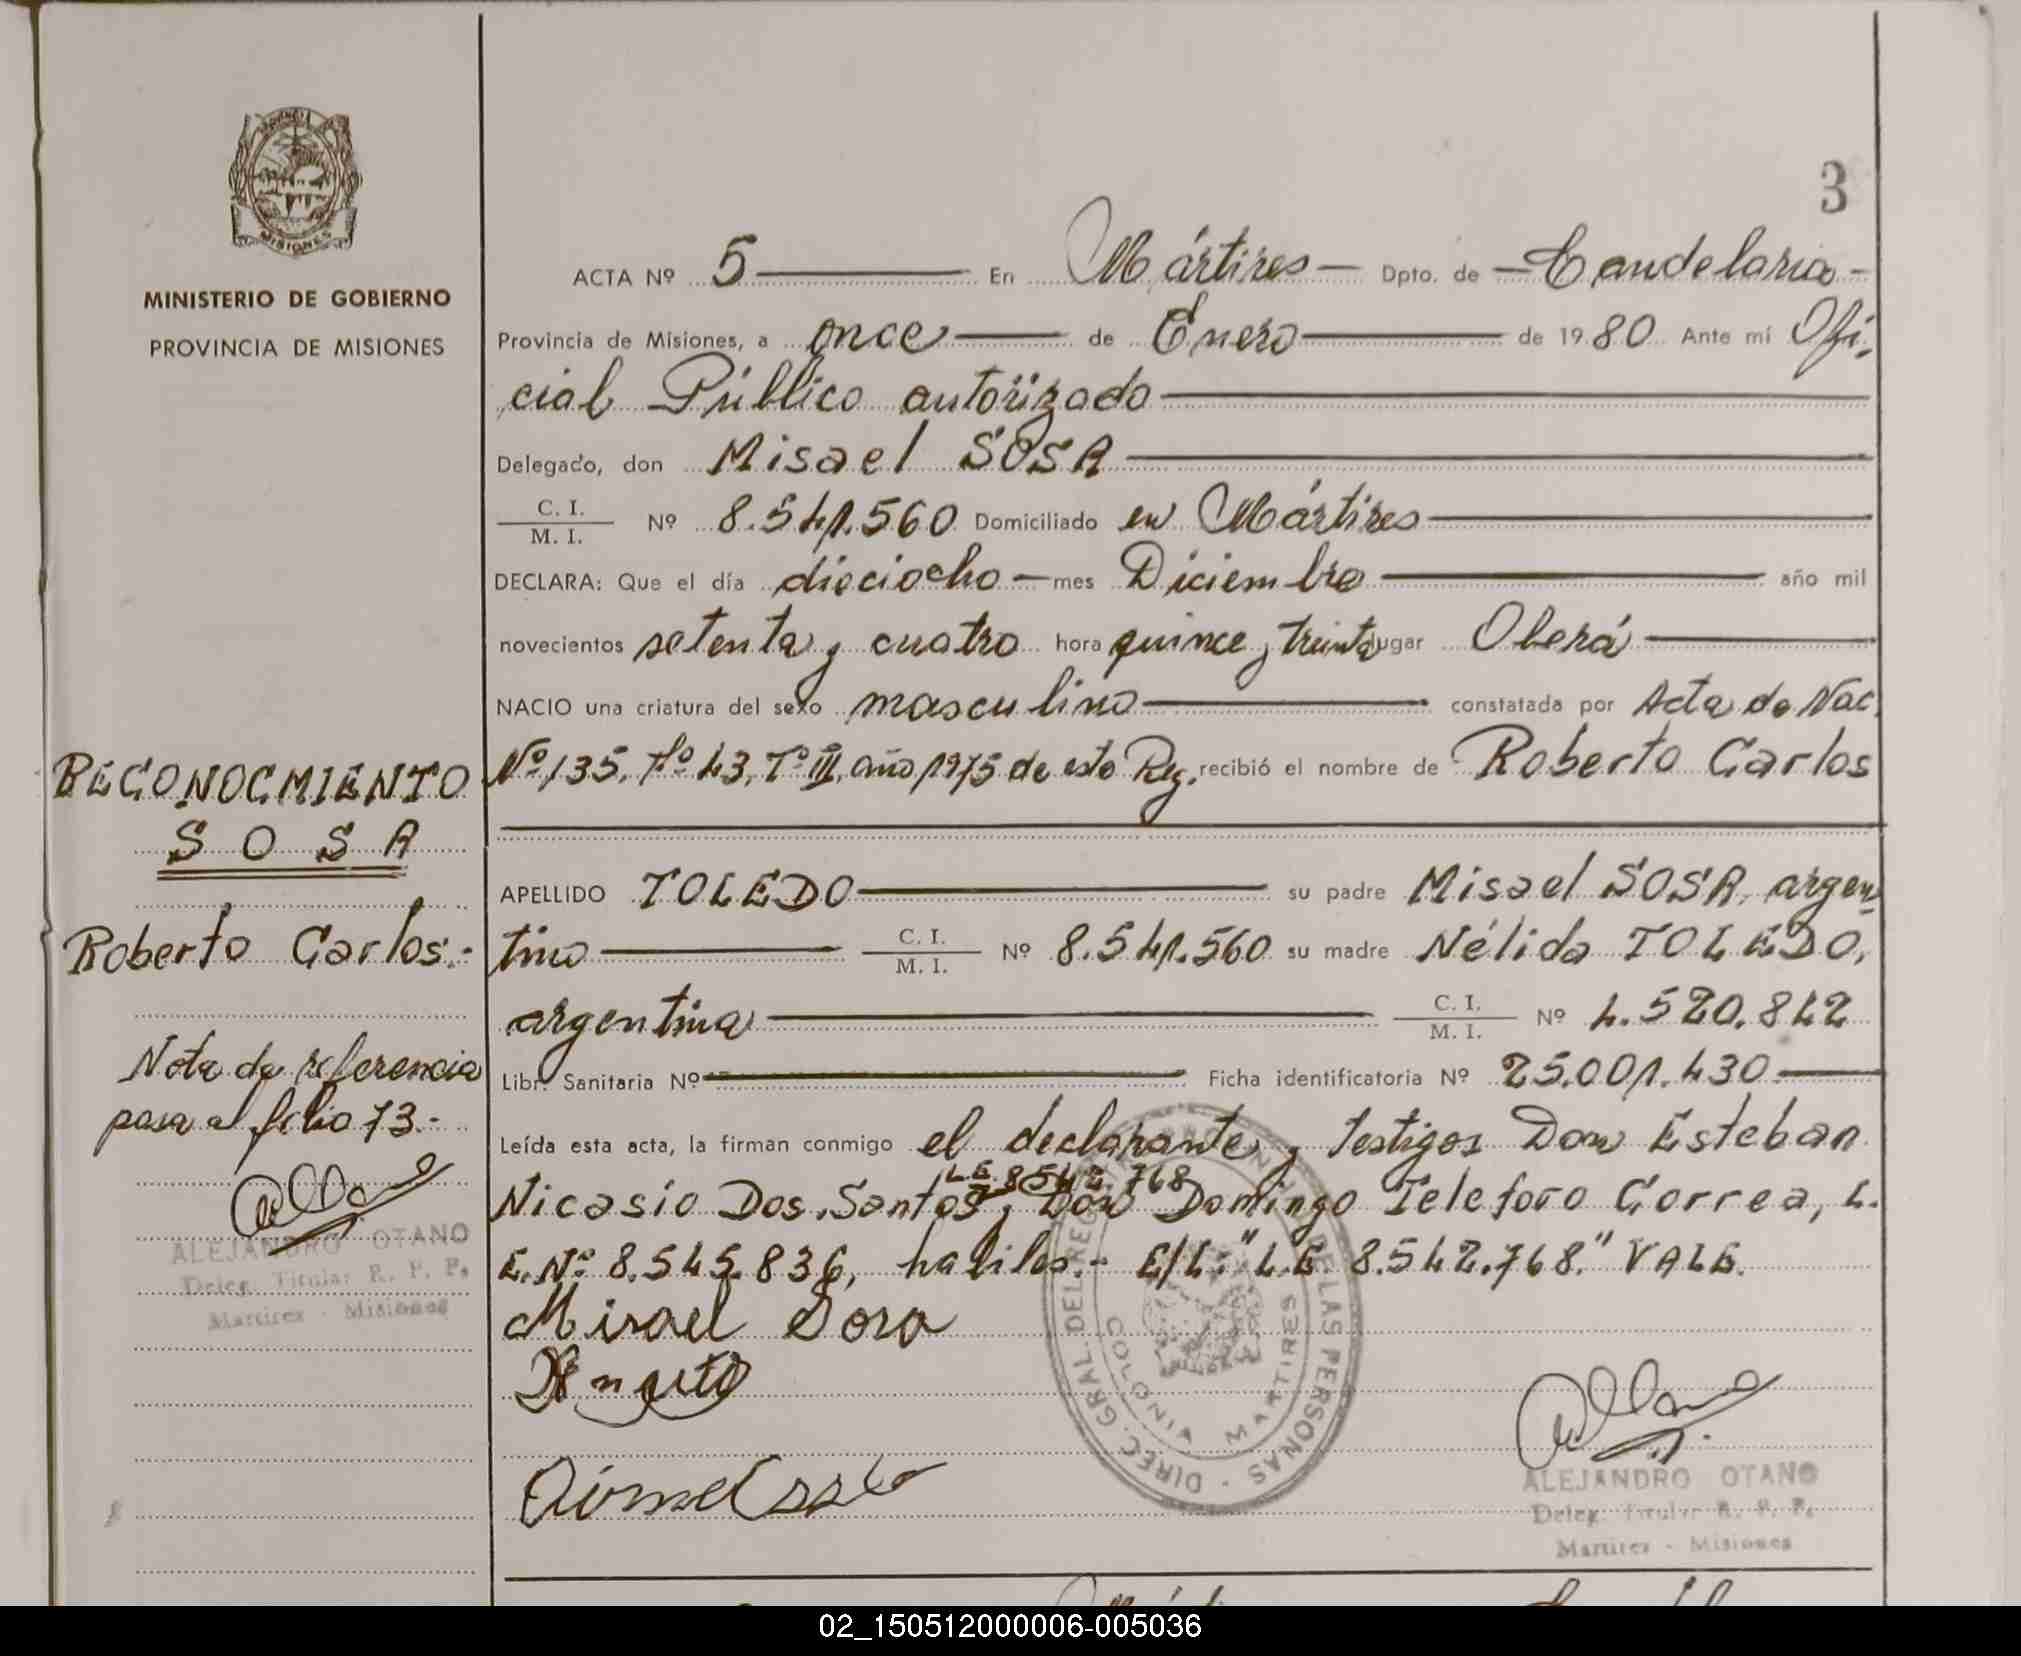 MISIONES
MINISTERIO DE GOBIERNO
PROVINCIA DE MISIONES
RECONOCMIENTO
SOSA
Roberto Carlos.-
Nota de referencia
pasa al folio 73.-
ALEJANDRO OTANO
Deleg. Titular R. P. P.
Martires - Misiones
3
ACTA Nº 5 En Mártires — Dpto. de — Candelaria -
Provincia de Misiones, a once de Enero de 1980 Ante mí Ofi-
cial Público autorizado
Delegado, don Misael SOSA
C. I. / M. I. Nº 8.541.560 Domiciliado en Mártires
DECLARA: Que el día dieciocho — mes Diciembre año mil
novecientos setenta y cuatro hora quince y treinta lugar Oberá
NACIO una criatura del sexo masculino constatada por Acta de Nac.
Nº 135, Fº 43, Tº III, año 1975 de este Reg. recibió el nombre de Roberto Carlos
APELLIDO TOLEDO su padre Misael SOSA, argen
tino C. I. / M. I. Nº 8.541.560 su madre Nélida TOLEDO,
argentina C. I. / M. I. Nº 4.520.842
Libr. Sanitaria Nº Ficha identificatoria Nº 25.001.430.
Leída esta acta, la firman conmigo el declarante y testigos Don Esteban
L.E. 8542.768
Nicasio Dos Santos y Don Domingo Teleforo Correa, L.
E. Nº 8.545.836, habiles.- E/L: "L.E. 8.542.768." VALE.
Misael Sosa
DIREC. GRAL. DEL REG. DE LAS PERSONAS
COLONIA MARTIRES
ALEJANDRO OTANO
Deleg. Titular R. P. P.
Martires - Misiones
02_150512000006-005036